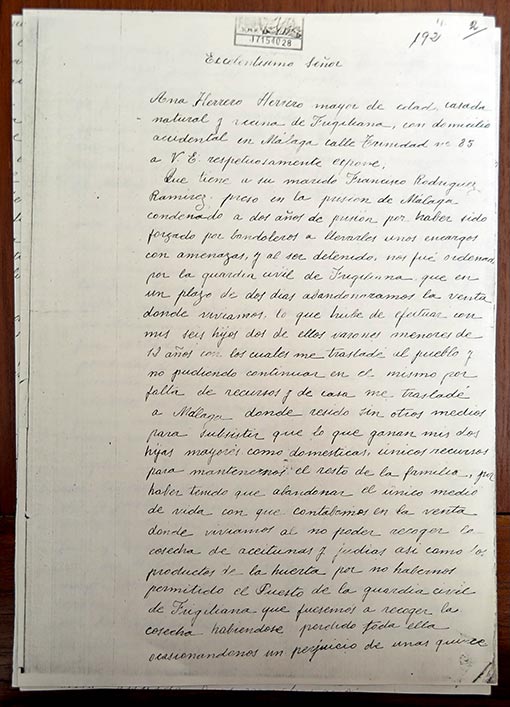 192
2
17154028
Excelentisimo Señor
Ana Herrero Herrero mayor de edad, casada
natural y vecina de Frigiliana, con domicilio
accidental en Málaga calle Trinidad nº 85
a V. E. respetuosamente espone,
Que tiene a su marido Francisco Rodriguez
Ramirez preso en la prision de Málaga
condenado a dos años de prision por haber sido
forzado por bandoleros a llevarles unos encargos
con amenazas, y al ser detenido, nos fué ordenado
por la guardia civil de Frigiliana que en
un plazo de dos dias abandonaramos la venta
donde viviamos, lo que hube de efectuar con
mis seis hijos dos de ellos varones menores de
12 años con los cuales me trasladé al pueblo y
no pudiendo continuar en el mismo por
falta de recursos y de casa me trasladé
a Málaga donde resido sin otros medios
para subsistir que lo que ganan mis dos
hijas mayores como domesticas, únicos recursos
para mantenernos el resto de la familia, por
haber tenido que abandonar el único medio
de vida con que contabamos en la venta
donde viviamos al no poder recoger la
cosecha de aceitunas y judias asi como los
productos de la huerta por no habernos
permitido el Puesto de la guardia civil
de Frigiliana que fuesemos a recoger la
cosecha habiendose perdido toda ella
ocasionandonos un perjuicio de unas quince